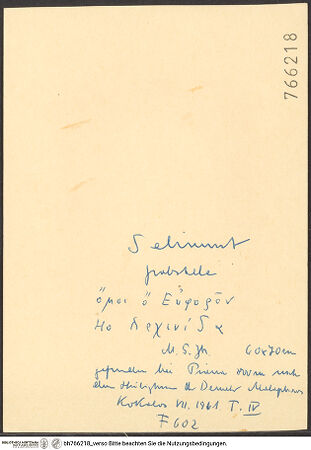 766218
Selinunt
Grabstele
ὄμοι ὦ Εὐφορον
το Ἀρχινίδα
M. 5. Jh. 60x70cm
gefunden bei
dem Heiligtum d. Demeter Malophoros
KoKalos VII. 1961 T. IV
F 602
bh766218_verso Bitte beachten Sie die Nutzungsbedingungen.